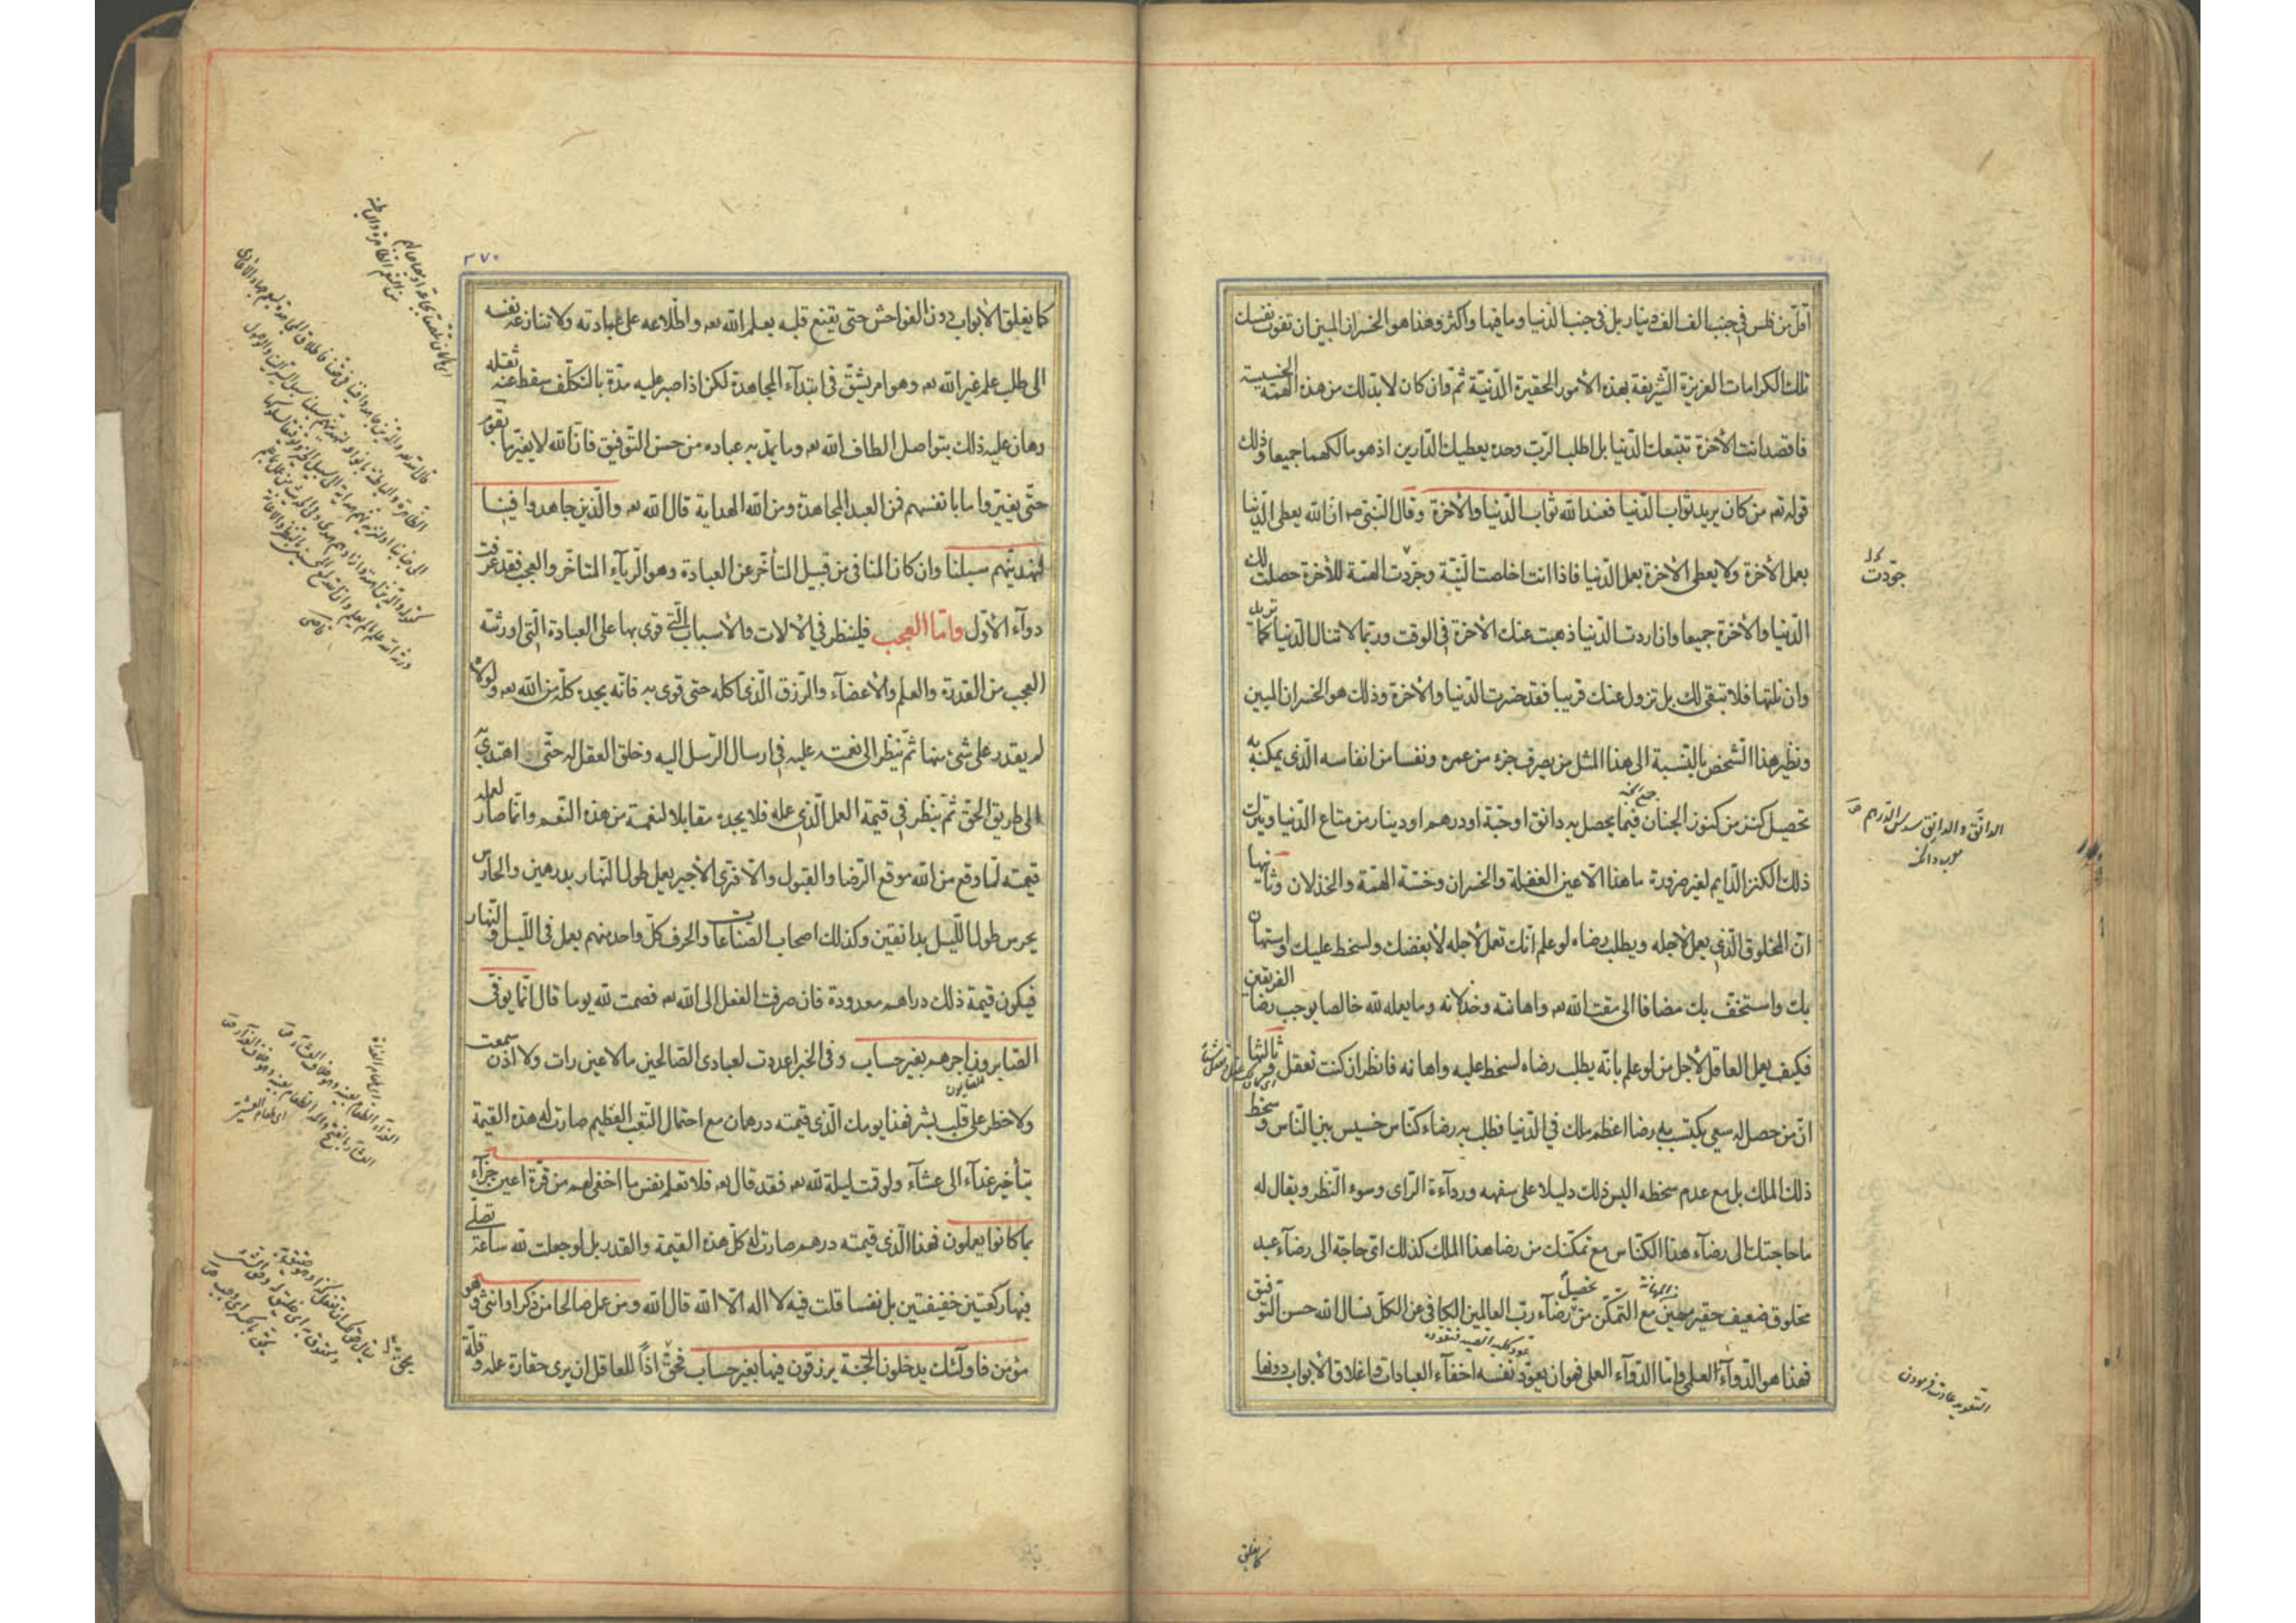 اقل من فلس في جنب الف الف دينار بل في جنب الدنيا وما فيها واكثر وهذا هو الخسران المبين ان تفوت نفسك
تلك الكرامات العزيزة الشريفة بهذه الأمور الحقيرة الدنية ثم وان كان لا بد لك من هذه الهمة الخسيسة
فاقصد انت الأخرة تتبعك الدنيا بل اطلب الرب وحده يعطيك الدارين اذ هو مالكهما جميعا وذلك
قوله تعه من كان يريد ثواب الدنيا فعند الله ثواب الدنيا والأخرة وقال النبي صه ان الله يعطي الدنيا
بعمل الأخرة ولا يعطي الأخرة بعمل الدنيا فاذا انت اخلصت النية وجردت الهمة للأخرة حصلت لك
الدنيا والأخرة جميعا وان اردت الدنيا ذهبت عنك الأخرة في الوقت وربما لا تنال الدنيا كما تريد
وان نلتها فلا تبقى لك بل تزول عنك قريبا فقد خسرت الدنيا والأخرة وذلك هو الخسران المبين
ونظير هذا الشخص بالنسبة الى هذا المثل من يصرف جزء من عمره ونفسا من انفاسه الذي يمكنه به
تحصيل كنز من كنوز الجنان فيما يحصل به دانق او حبة او درهم او دينار من متاع الدنيا ويترك
ذلك الكنز الدايم لغير ضرورة ما هذا الا عين الغفلة والخسران وخسة الهمة والخذلان وثانيها
ان المخلوق الذي يعمل لأجله ويطلب رضاه لو علم انك تعمل لأجله لأبغضك ولسخط عليك واستهان
بك واستخف بك مضافا الى مقت الله تعه واهانته وخذلانه وما يعمله لله خالصا يوجب رضا الفريقين
فكيف يعمل العاقل لأجل من لو علم بانه يطلب رضاه لسخط عليه واهانه فانظر ان كنت تعقل وثالثها
ان من حصل له سعي يكتسب به رضا اعظم ملك في الدنيا فطلب به رضاء كناس خسيس بين الناس وسخط
ذلك الملك بل مع عدم سخطه اليس ذلك دليلا على سفهه ورداءة الراى وسوء النظر ويقال له
ما حاجتك الى رضآء هذا الكناس مع تمكنك من رضا هذا الملك كذلك اي حاجة الى رضآء عبد
مخلوق ضعيف حقير مهين مع التمكن من تحصيل رضآء رب العالمين الكافي عن الكل نسال الله حسن التوفيق
فهذا هو الدوآء العلمي واما الدوآء العملي فهو ان يعود نفسه اخفآء العبادات واغلاق الأبواب دونها
جودت
الدانق والدانق سدس الدرهم ص
كما يغلق
٢٧٠
كما يغلق الأبواب دون الفواحش حتى يقنع قلبه بعلم الله تعه واطلاعه على عبادته ولا تنازعه نفسه
الى طلب علم غير الله تعه وهو امر يشق في ابتدآء المجاهدة لكن اذا صبر عليه مدة بالتكلف سقط عنه ثقله
وهان عليه ذلك بتواصل الطاف الله تعه وما يمد به عباده من حسن التوفيق فان الله لا يغير ما بقوم
حتى يغيروا ما بانفسهم فمن العبد المجاهدة ومن الله الهداية قال الله تعه والذين جاهدوا فينا
لنهدينهم سبلنا وان كان المنافي من قبيل المتأخر عن العبادة وهو الريآء المتأخر والعجب فقد عرفت
دوآء الأول واما العجب فلينظر في الألات والأسباب التي قوى بها على العبادة التي اورثته
العجب من القدرة والعلم والأعضآء والرزق الذي اكله حتى قوى به فانه يجده كله من الله تعه ولولاه
لم يقدر على شئ منها ثم ينظر الى نعمته عليه في ارسال الرسل اليه وخلق العقل له حتى اهتدى به
الى طريق الحق ثم ينظر في قيمة العمل الذي عمله فلا يجده مقابلا لنعمة من هذه النعم وانما صار لعمله
قيمة لما وقع من الله موقع الرضا والقبول والا فترى الأجير يعمل طول النهار بدرهمين والحارس
يحرس طول الليل بدانقين وكذلك اصحاب الصناعات والحرف كل واحد منهم يعمل في الليل والنهار
فيكون قيمة ذلك دراهم معدودة فان صرفت الفعل الى الله تعه فصمت لله يوما قال انما يوفى
الصابرون اجرهم بغير حساب وفي الخبر اعددت لعبادى الصالحين ما لا عين رات ولا اذن سمعت
ولا خطر على قلب بشر فهذا يومك الذي قيمته درهمان مع احتمال التعب العظيم صارت له هذه القيمة
بتأخير غدآء الى عشآء ولو قمت ليلة لله تعه فقد قال تعه فلا تعلم نفس ما اخفى لهم من قرة اعين جزآء
بما كانوا يعملون فهذا الذي قيمته درهم صارت له كل هذه القيمة والقدر بل لو جعلت لله ساعة تصلى
فيها ركعتين خفيفتين بل نفسا قلت فيه لا اله الا الله قال الله ومن عمل صالحا من ذكر او انثى وهو
مؤمن فاولئك يدخلون الجنة يرزقون فيها بغير حساب فحق اذا للعاقل ان يرى حقارة عمله وقلة